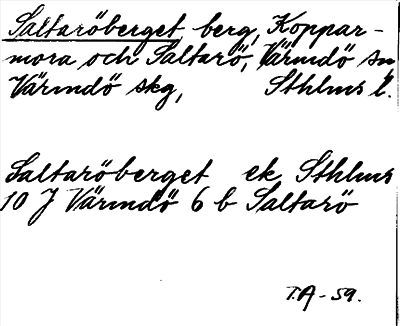 Saltaröberget, berg, Koppar-
mora och Saltarö, Värmdö sn
Värmdö skg, Sthlms l.
Saltaröberget ek Sthlms
10 J Värmdö 6 b Saltarö
T.A-59.